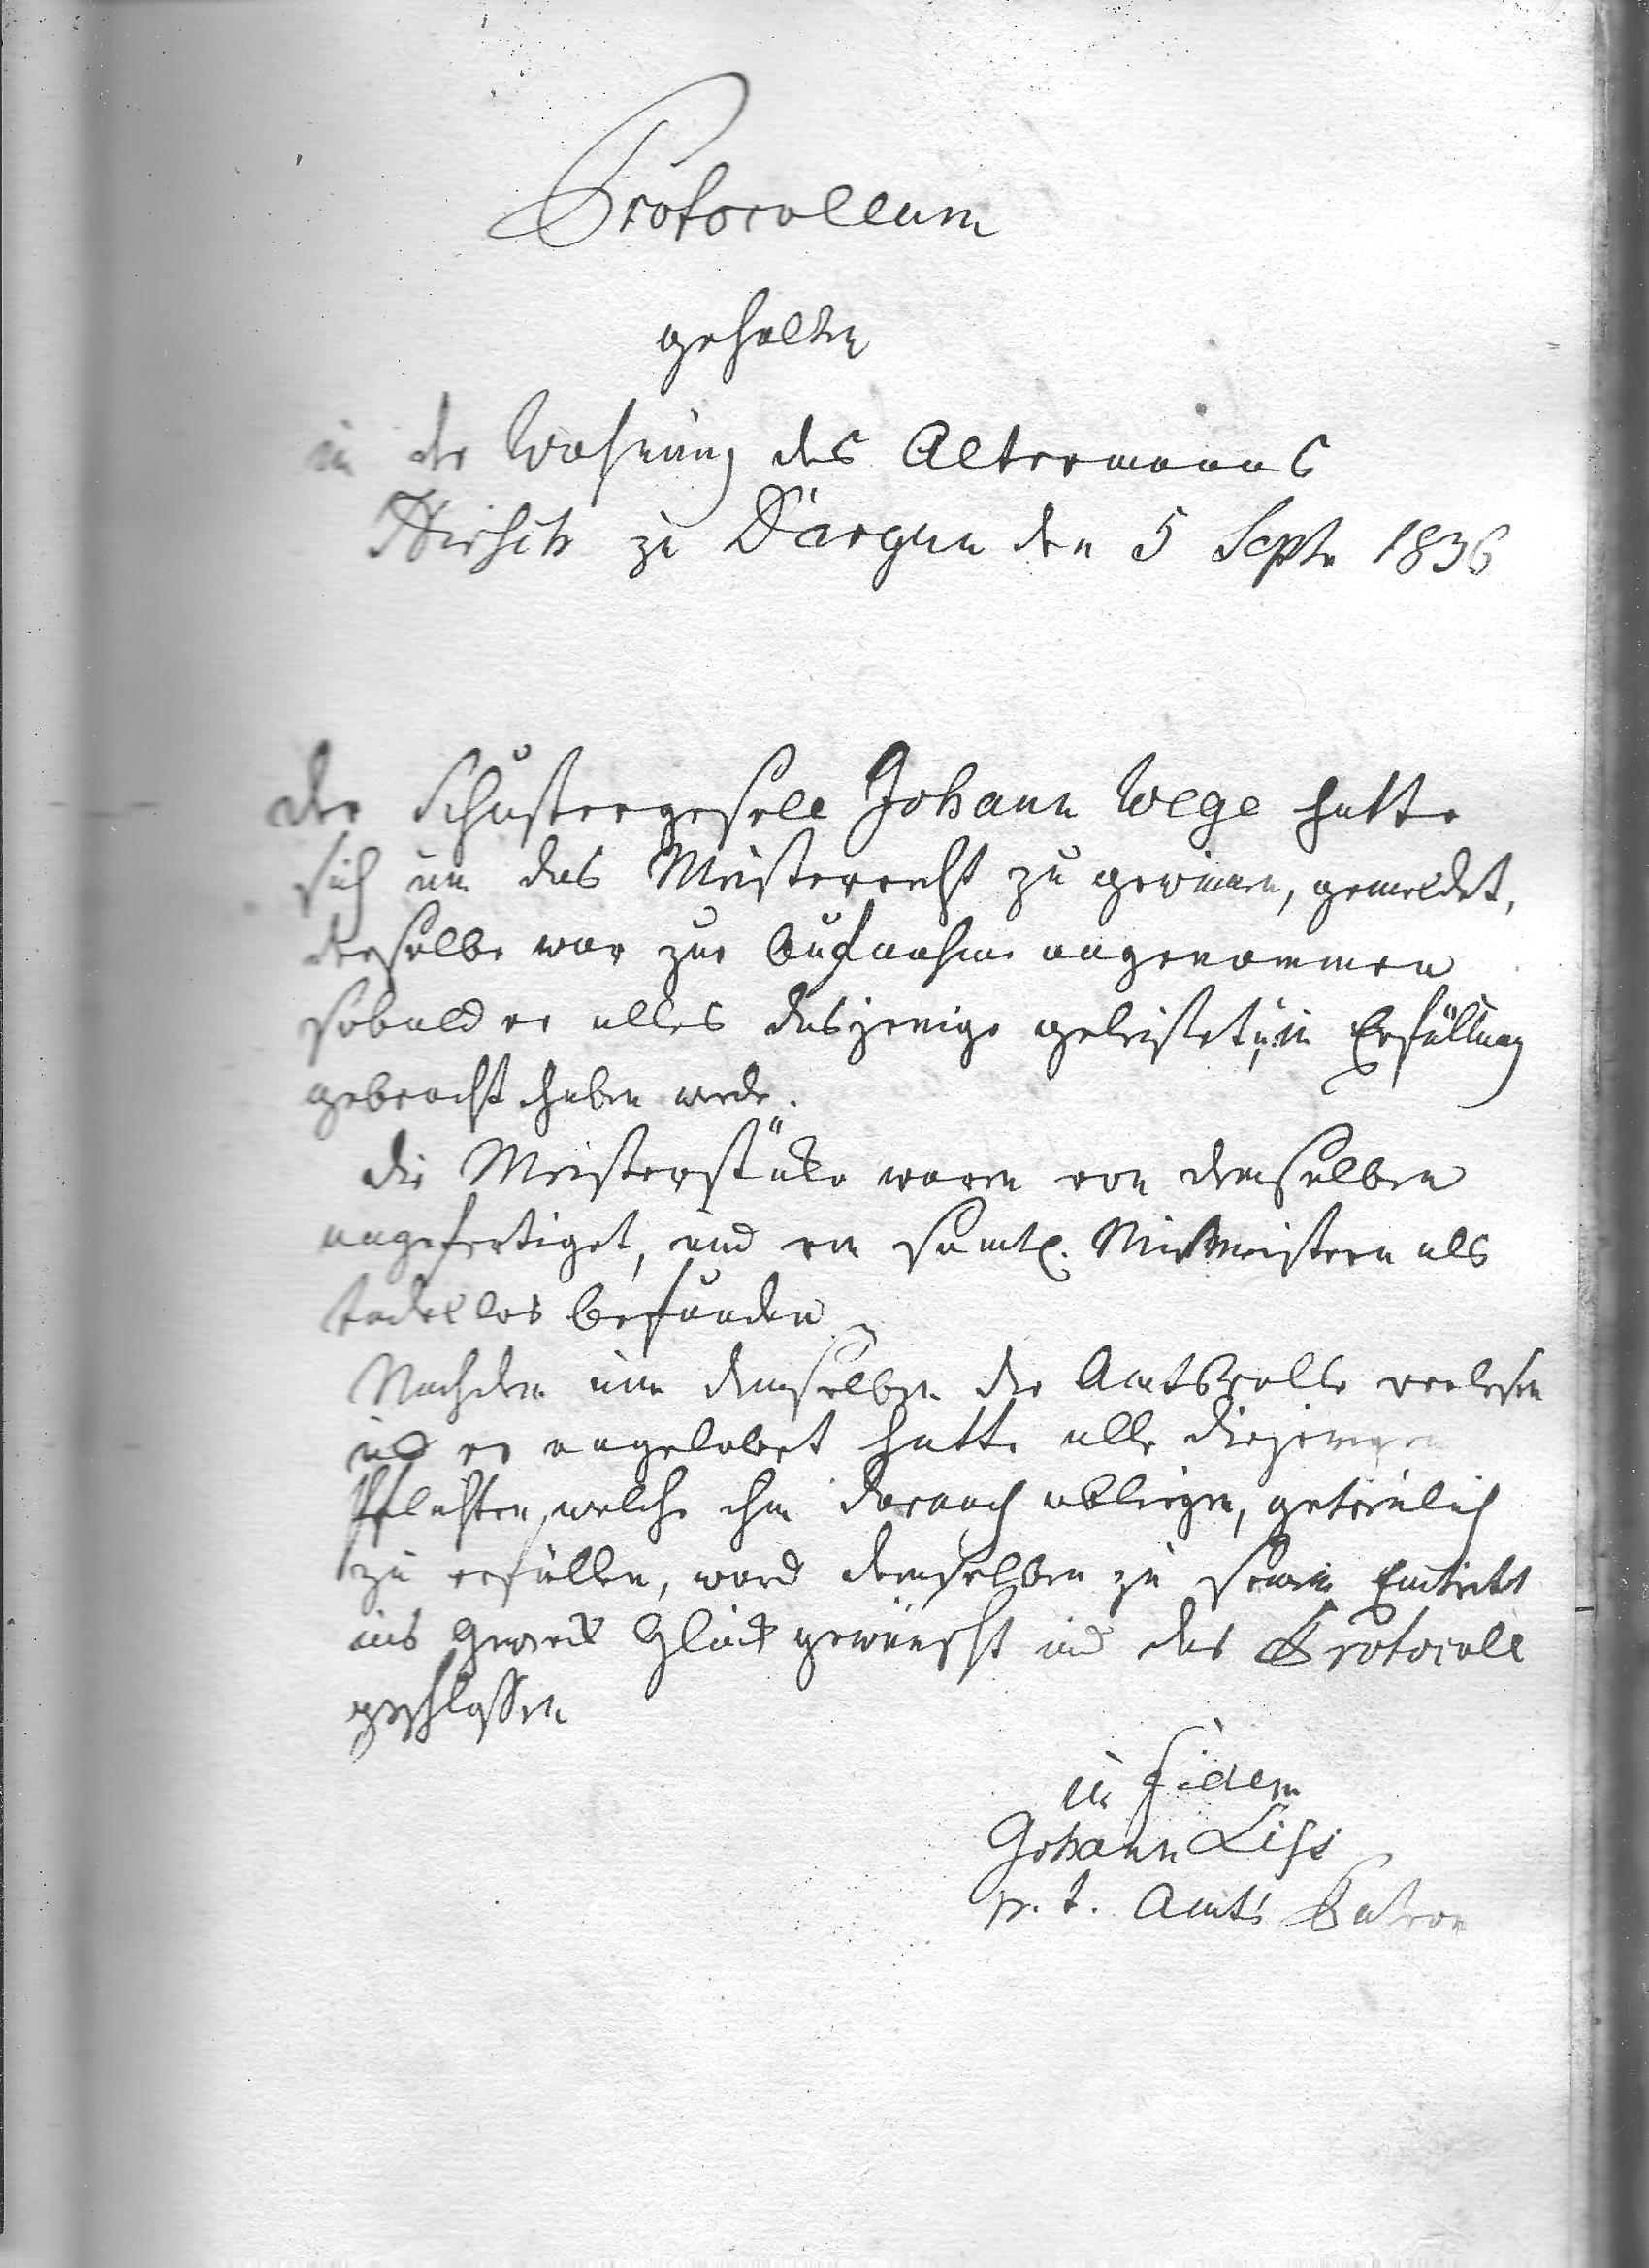 Protocollum
gehalten
in der Wohnung des Altermanns
zu Dargun den 5 Septr 1836
Der Schustergesell Johann Wege hatte
sich um das Meisterrecht zu gewinnen, gemeldet,
derselbe war zur Aufnahme angenommen
sobald er alles dasjenige geleistet u. in Erfüllung
gebracht haben werde.
Die Meisterstücke waren von demselben
angefertiget, und von sämtl. Mitmeistern als
tadellos befunden
Nachdem nun demselben die Amtsrolle verlesen
und er angelobet hatte alle diejenigen
Pflichten, welche ihm darnach obliegen, getreulich
zu erfüllen, ward demselben zu seinem Eintritt
ins Gewerk Glück gewünscht und das Protocoll
geschlossen
in fidem
Johann
p. t. Amts Patron